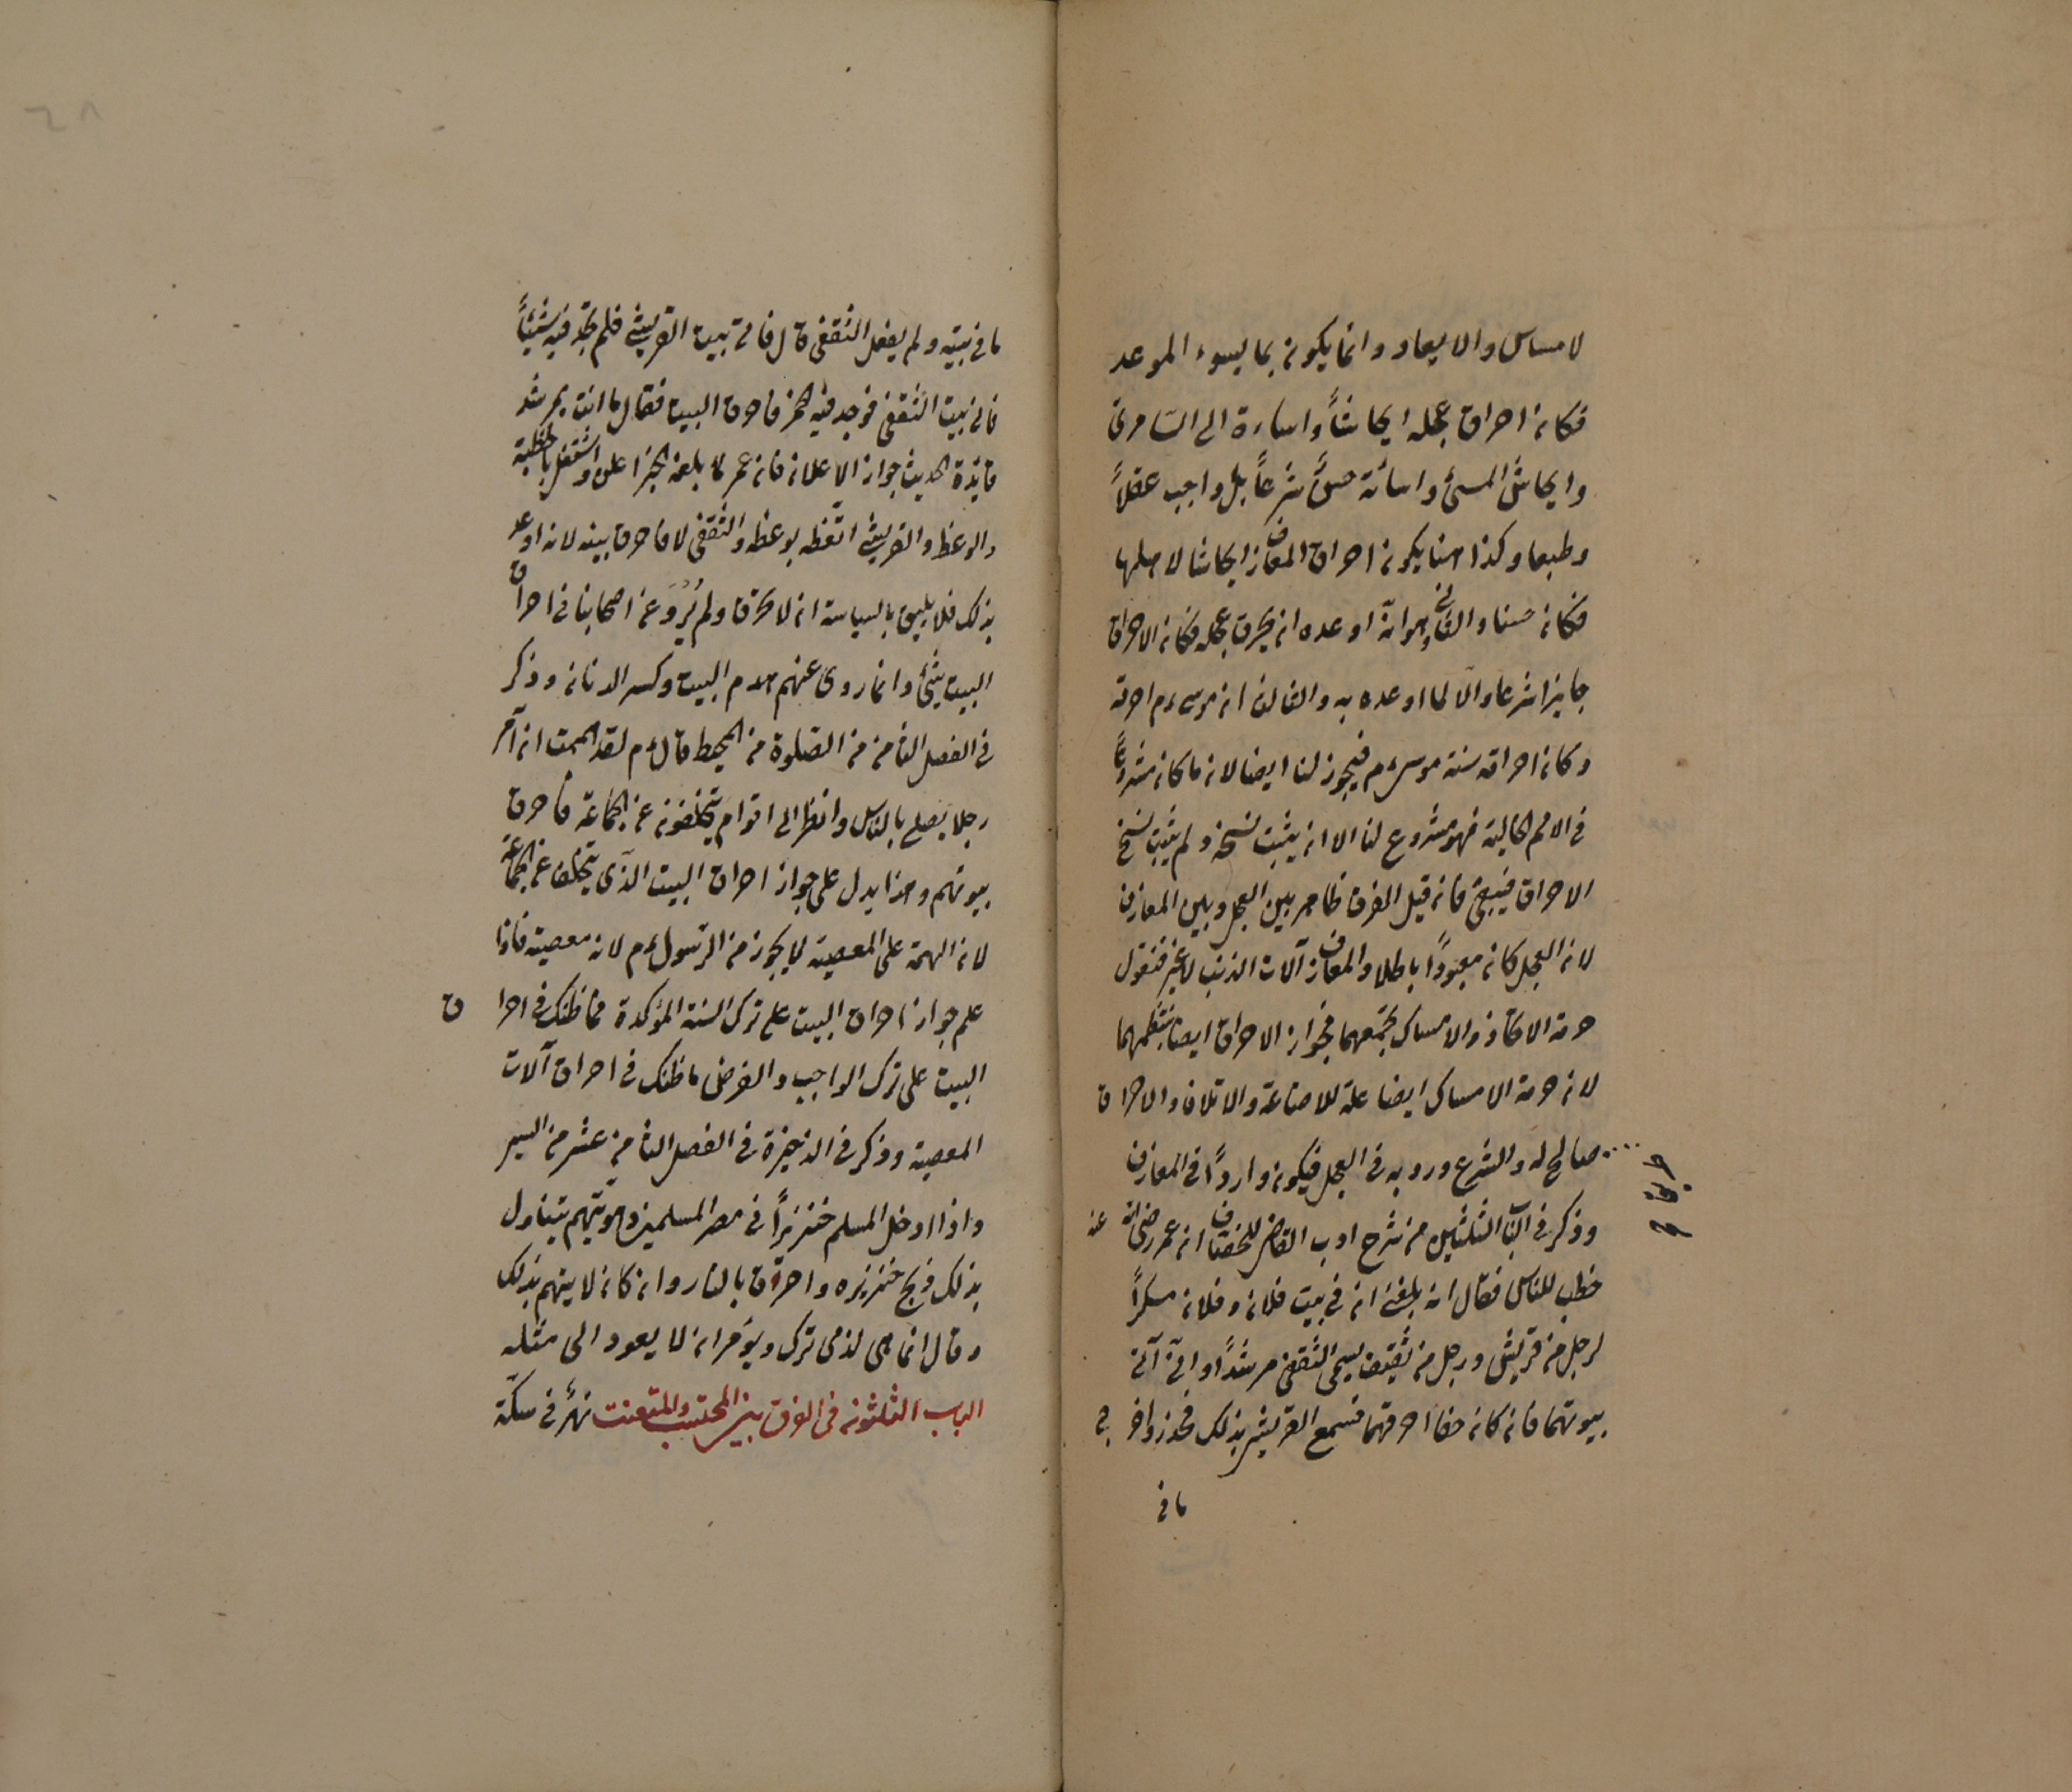 لا مساس والايعاد وانما يكون بما يسوء الموعد
فكان احراق عجله ايحاشاً واساءة الى السامرى
وايحاش المسئ واسائة حسنٌ شرعاً بل واجب عقلاً
وطبعا وكذا هنا يكون احراق المعازف ايحاشا لاهلها
فكان حسنا والثانى وهو انه اوعده ان يحرق عجله فكان الاحراق
جايزا شرعا والا لما اوعده به والثالث ان موسى ءم احرقه
وكان احراقه سنة موسى ءم فيجوز لنا ايضا لان ما كان مشروعاً
فى الامم الخالية فهو مشروع لنا الا ان يثبت نسخه ولم يثبت نسخ
الاحراق فيبقى فان قيل الفرق ظاهر بين العجل وبين المعازف
لان العجل كان معبوداً باطلا والمعازف آلات الذنب لا غير فنقول
حرمة الاتخاذ والامساك يجمعهما فجواز الاحراق ايضا ينتظمهما
لان حرمة الامساك ايضا علة للاضاعة والاتلاف والاحراق
صالح له والشرع ورد به فى العجل فيكون واردًا فى المعازف
وذكر فى الباب الثلثين من شرح ادب القاضى للخصاف ان عمر رضى الله عنه
خطب للناس فقال انه بلغنى ان فى بيت فلان وفلان مسكراً
لرجل من قريش ورجل من ثقيف يسمى الثقفى مرشداً وانى آتى
بيوتهما فان كان حقا احرقتهما فسمع القريشى بذلك فحذر واخرج
ما فى
ما فى بيته ولم يفعل الثقفى قال فاتى بيت القريشى فلم يجد فيه شيئاً
فاتى بيت الثقفى فوجد فيه الخمر فاحرق البيت فقال ما انت بمرشد
فايدة الحديث جواز الاعلان فان عمر لما بلغه الخبر اعلن واشتغل بالخطبة
والوعظ والقريشى اتعظ بوعظه والثقفى لا فاحرق بيته لانه اوعد
بذلك فلا يليق بالسياسة ان لا يحرق ولم يُروَ عن اصحابنا فى احراق
البيت شئ وانما روى عنهم هدم البيت وكسر الدنان وذكر
فى الفصل الثامن من الصلوة من المحيط قال ءم لقد هممت ان آمر
رجلا يصلى بالناس وانظر الى اقوام يتخلفون عن الجماعة فاحرق
بيوتهم وهذا يدل على جواز احراق البيت الذى يتخلف عن الجماعة
لان الهمة على المعصية لا يجوز من الرسول ءم لانه معصية فاذا
علم جواز احراق البيت على ترك السنة المؤكدة فما ظنك فى احراق
البيت على ترك الواجب والفرض ما ظنك فى احراق آلات
المعصية وذكر فى الذخيرة فى الفصل الثامن عشر من السير
واذا ادخل المسلم خنزيراً فى مصر المسلمين وهو يتهم بتناول
بذلك ذبح خنزيره واحرق بالنار وان كان لا يتهم بذلك
وقال انما هى لذمى ترك ويؤمر ان لا يعود الى مثله
الباب الثلثون فى الفرق بين المحتسب والمتعنت نهرٌ فى سكة